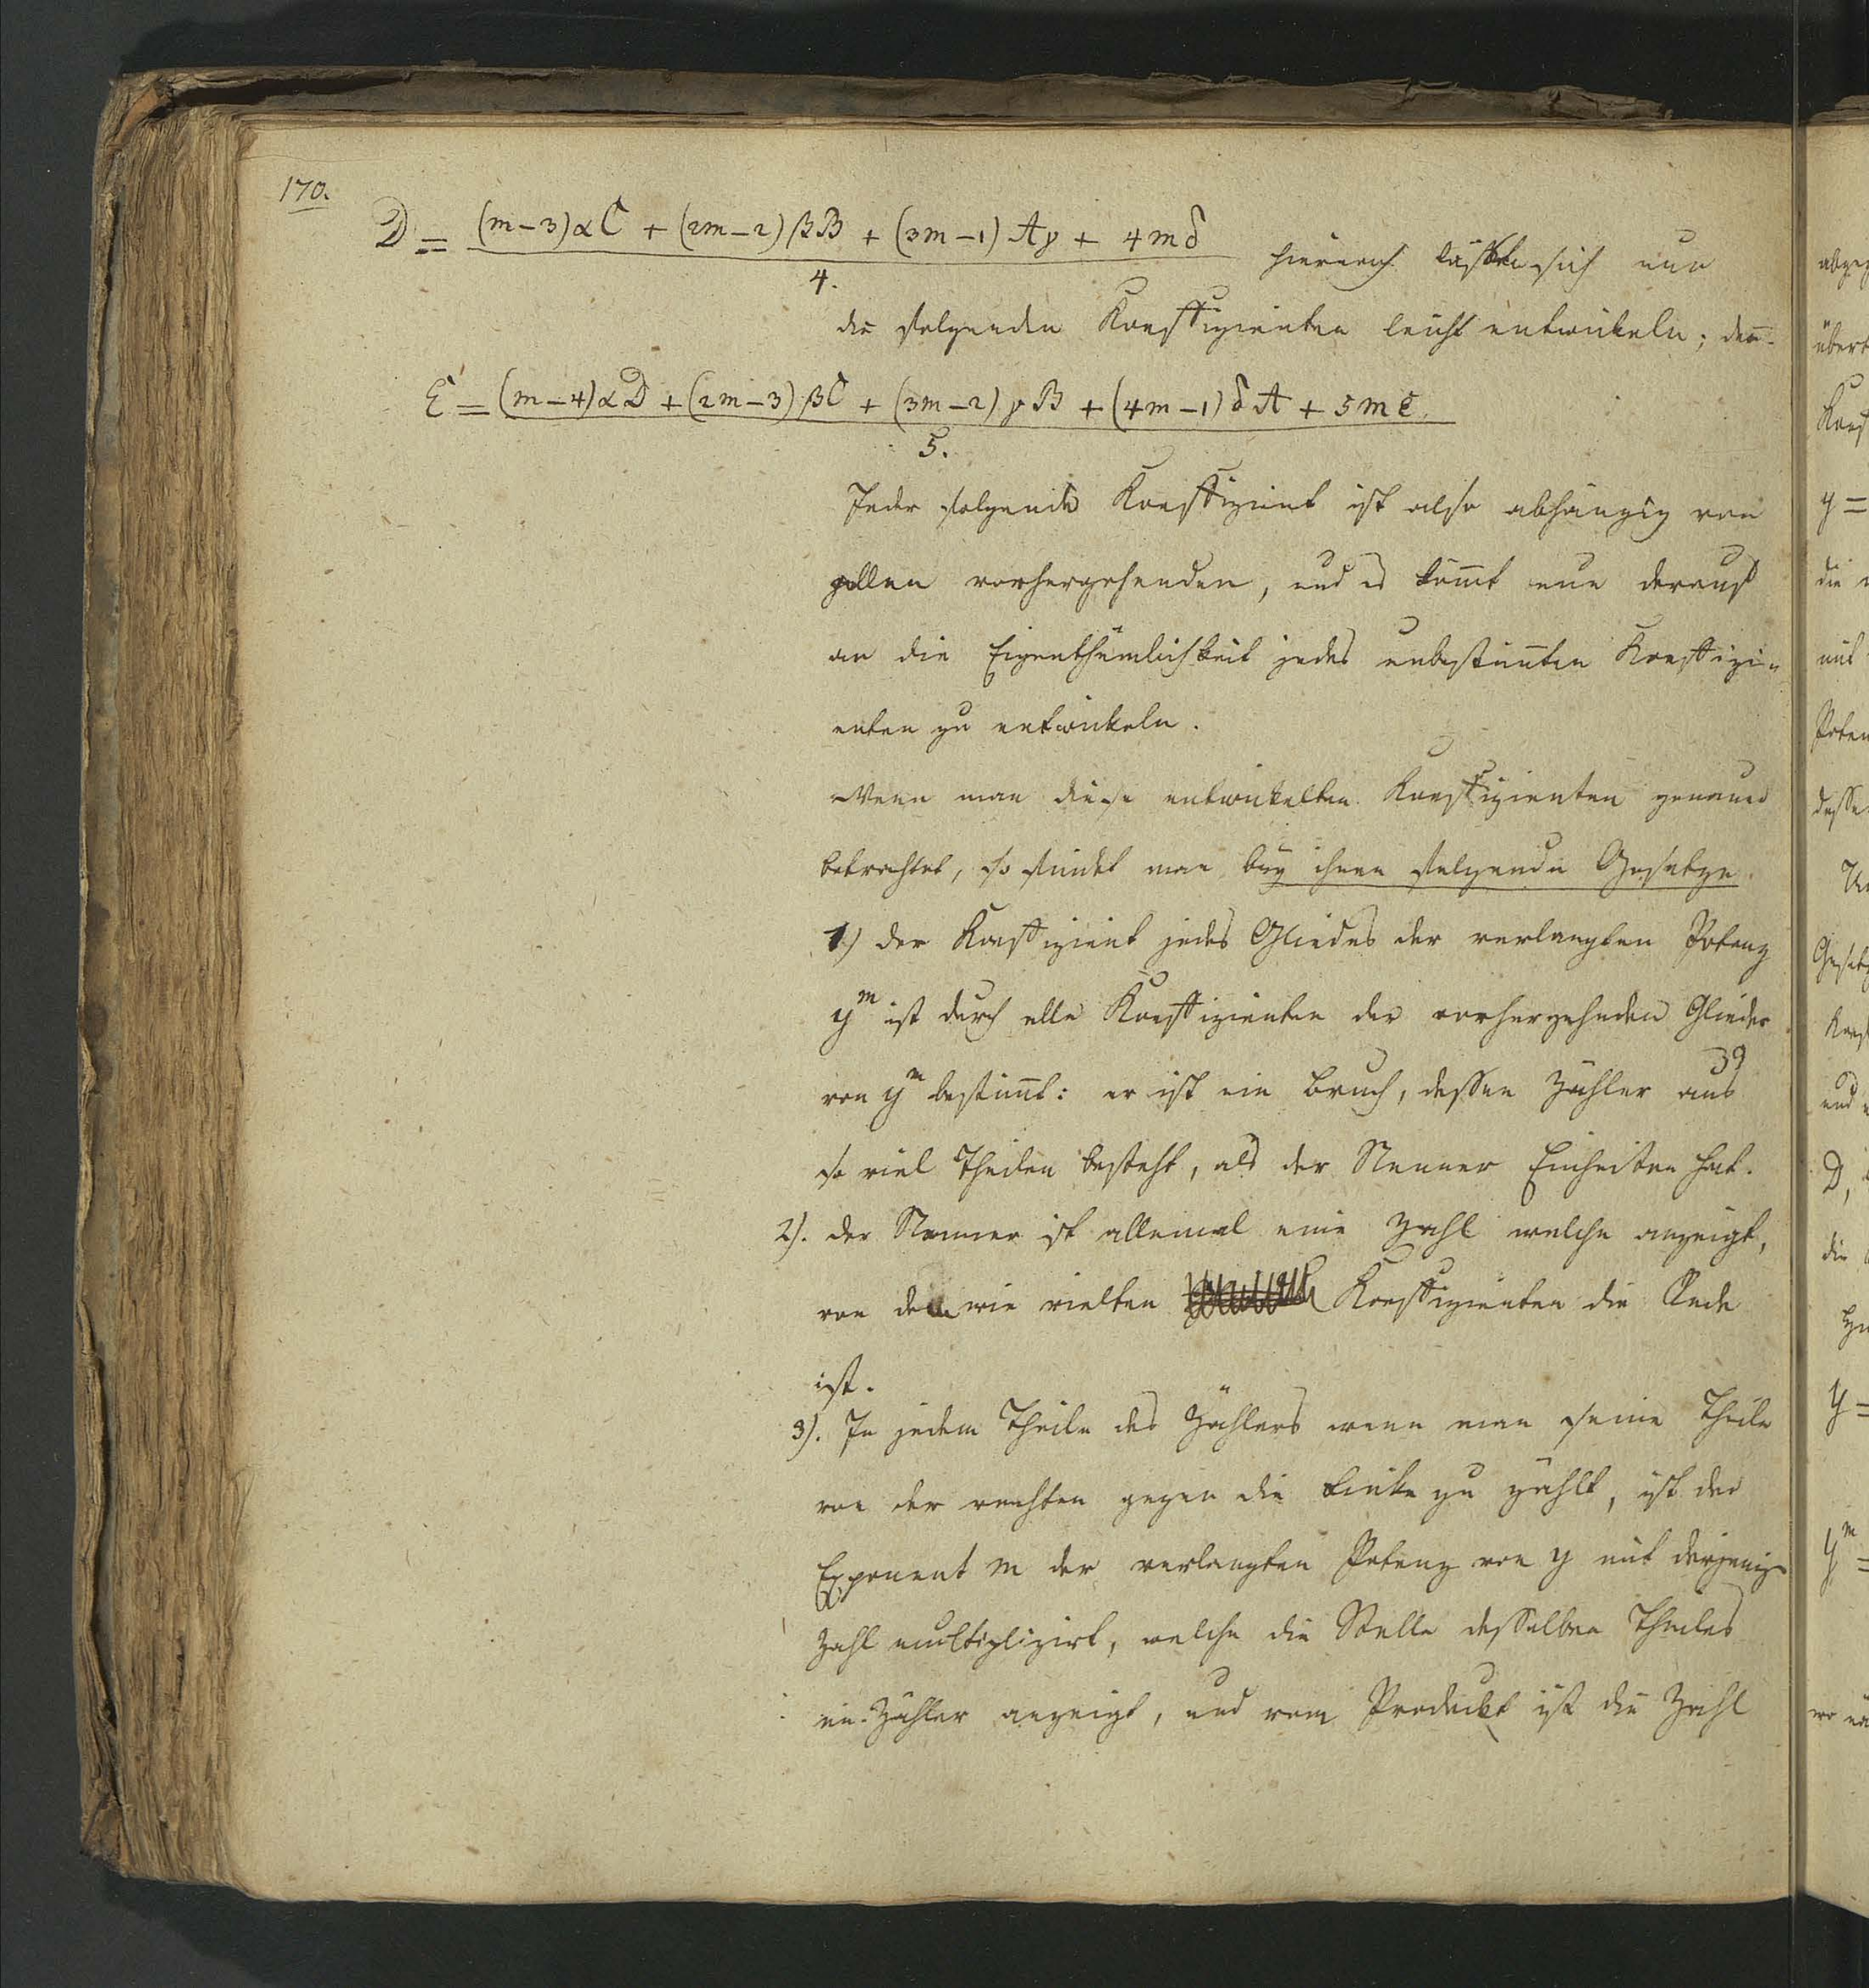 170.
D = (m-3)αC + (2m-2)βB + (3m-1)Aγ + 4mδ hieraus lassen sich nun
4.
die folgenden Koeffizienten leicht entwickeln; den̅.
E = (m-4)αD + (2m-3)βC + (3m-2)γB + (4m-1)δA + 5mε
5.
Jeder folgende Koeffizient ist also abhängig von
allen vorhergehenden, und es kom̅t nun darauf
an die Eigenthümlichkeit jedes unbestim̅ten Koeffizi-
enten zu entwickeln.
Wenn man diese entwickelten Koeffizienten genauer
betrachtet, so findet man bey ihnen folgende Gesetze
1) der Koeffizient jedes Gliedes der verlangten Potenz
y^m ist durch alle Koeffizienten der vorhergehnden Glieder
von y^m bestim̅t: er ist ein Bruch, dessen Zähler aus
so viel Theilen besteht, als der Nenner Einheiten hat.
2). der Nenner ist allemal eine Zahl welche anzeigt,
von dem wie vielten Koeffizienten die Rede
ist.
3). In jedem Theile des Zählers wenn man seine Theile
von der rechten gegen die Linke zu zählt, ist der
Exponent m der verlangten Potenz von y mit derjenig
Zahl multiplizirt, welche die Stelle desselben Theiles
im Zähler anzeigt, und vom Produckt ist die Zahl
abge
übert
Koef
y =
die
mit
Poten
desse
Gesetz
Koef
und
D,
die
y =
y^m =
wo